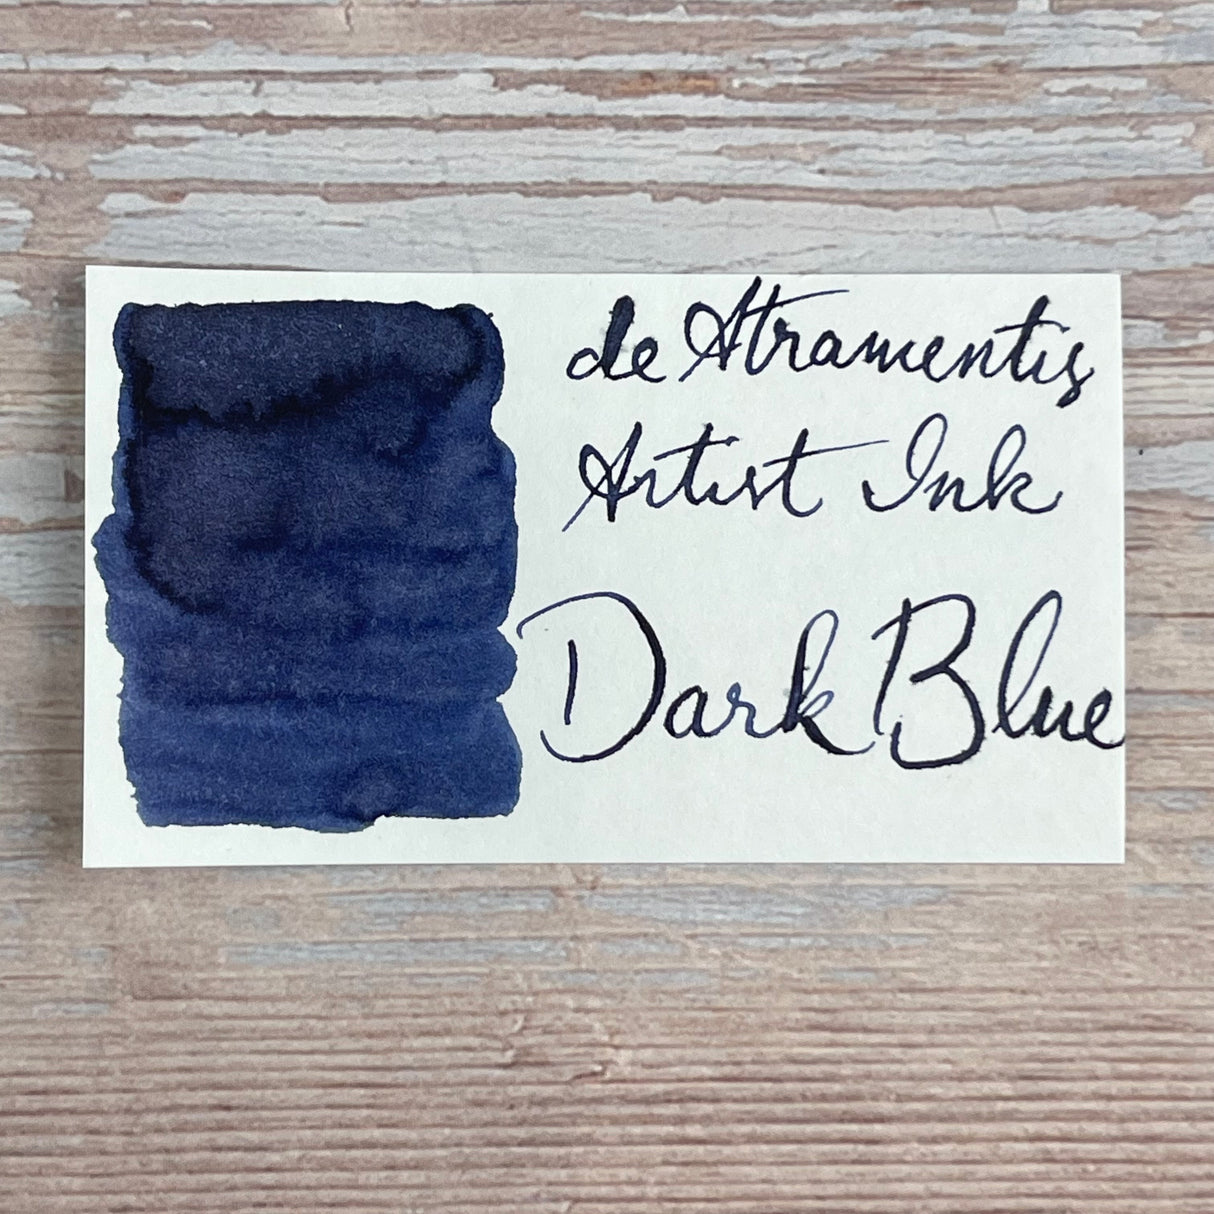 de Atramentis
Artist Ink
Dark Blue